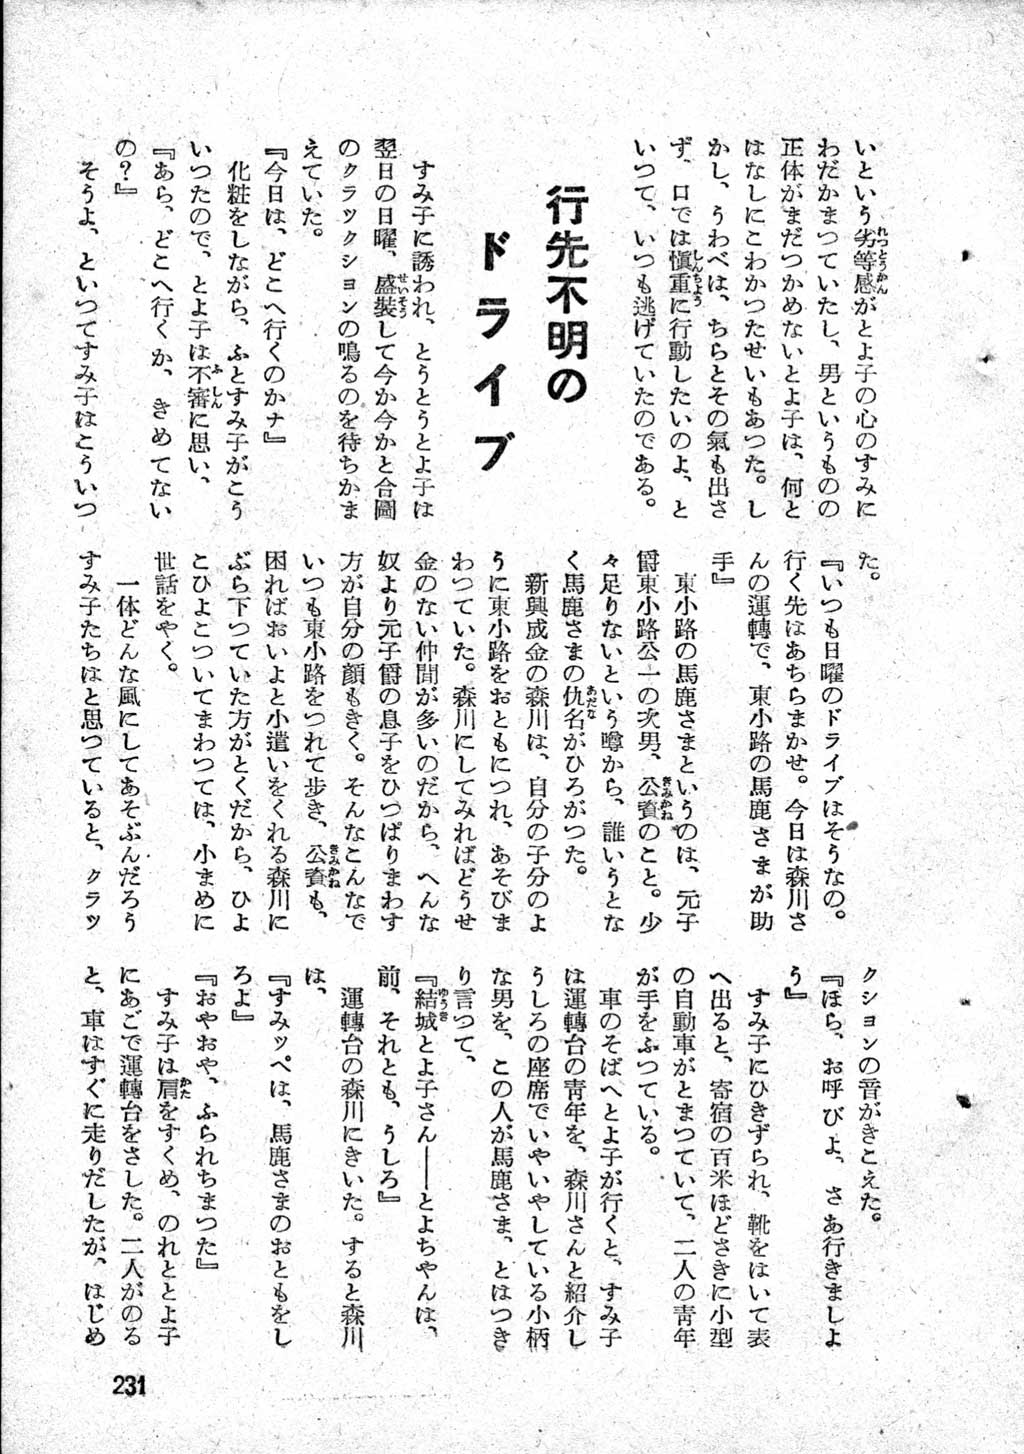 いという劣等感がとよ子の心のすみに
わだかまつていたし、男というものの
正体がまだつかめないとよ子は、何と
はなしにこわかつたせいもあつた。し
かし、うわべは、ちらとその氣も出さ
ず、口では愼重に行動したいのよ、と
いつて、いつも逃げていたのである。
行先不明の
ドライブ
すみ子に誘われ、とうとうとよ子は
翌日の日曜、盛裝して今か今かと合圖
のクラックションの鳴るのを待ちかま
えていた。
『今日は、どこへ行くのかナ』
化粧をしながら、ふとすみ子がこう
いつたので、とよ子は不審に思い、
『あら、どこへ行くか、きめてない
の？』
そうよ、といつてすみ子はこういつ
た。
『いつも日曜のドライブはそうなの。
行く先はあちらまかせ。今日は森川さ
んの運轉で、東小路の馬鹿さまが助
手』
東小路の馬鹿さまというのは、元子
爵東小路公一の次男、公資のこと。少
々足りないという噂から、誰いうとな
く馬鹿さまの仇名がひろがつた。
新興成金の森川は、自分の子分のよ
うに東小路をおともにつれ、あそびま
わつていた。森川にしてみればどうせ
金のない仲間が多いのだから、へんな
奴より元子爵の息子をひつぱりまわす
方が自分の顔もきく。そんなこんなで
いつも東小路をつれて歩き、公資も、
困ればおいよと小遣いをくれる森川に
ぶら下つていた方がとくだから、ひよ
こひよこついてまわつては、小まめに
世話をやく。
一体どんな風にしてあそぶんだろう
すみ子たちはと思つていると、クラッ
クションの音がきこえた。
『ほら、お呼びよ、さあ行きましよ
う』
すみ子にひきずられ、靴をはいて表
へ出ると、寄宿の百米ほどさきに小型
の自動車がとまつていて、二人の靑年
が手をふつている。
車のそばへとよ子が行くと、すみ子
は運轉台の靑年を、森川さんと紹介し
うしろの座席でいやいやしている小柄
な男を、この人が馬鹿さま、とはつき
り言つて、
『結城とよ子さん――とよちやんは、
前、それとも、うしろ』
運轉台の森川にきいた。すると森川
は、
『すみッペは、馬鹿さまのおともをし
ろよ』
『おやおや、ふられちまつた』
すみ子は肩をすくめ、のれととよ子
にあごで運轉台をさした。二人がのる
と、車はすぐに走りだしたが、はじめ
231